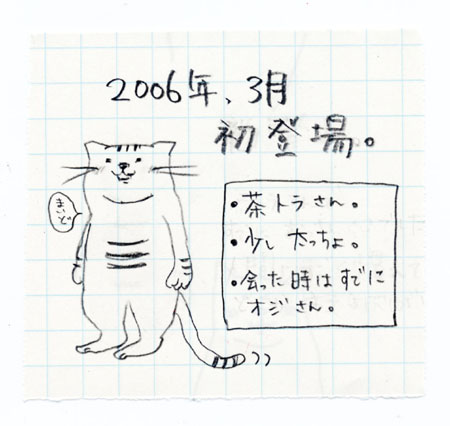 2006年、3月
初登場。
まいど
・茶トラさん。
・少し太っちょ。
・会った時はすでに
オジさん。